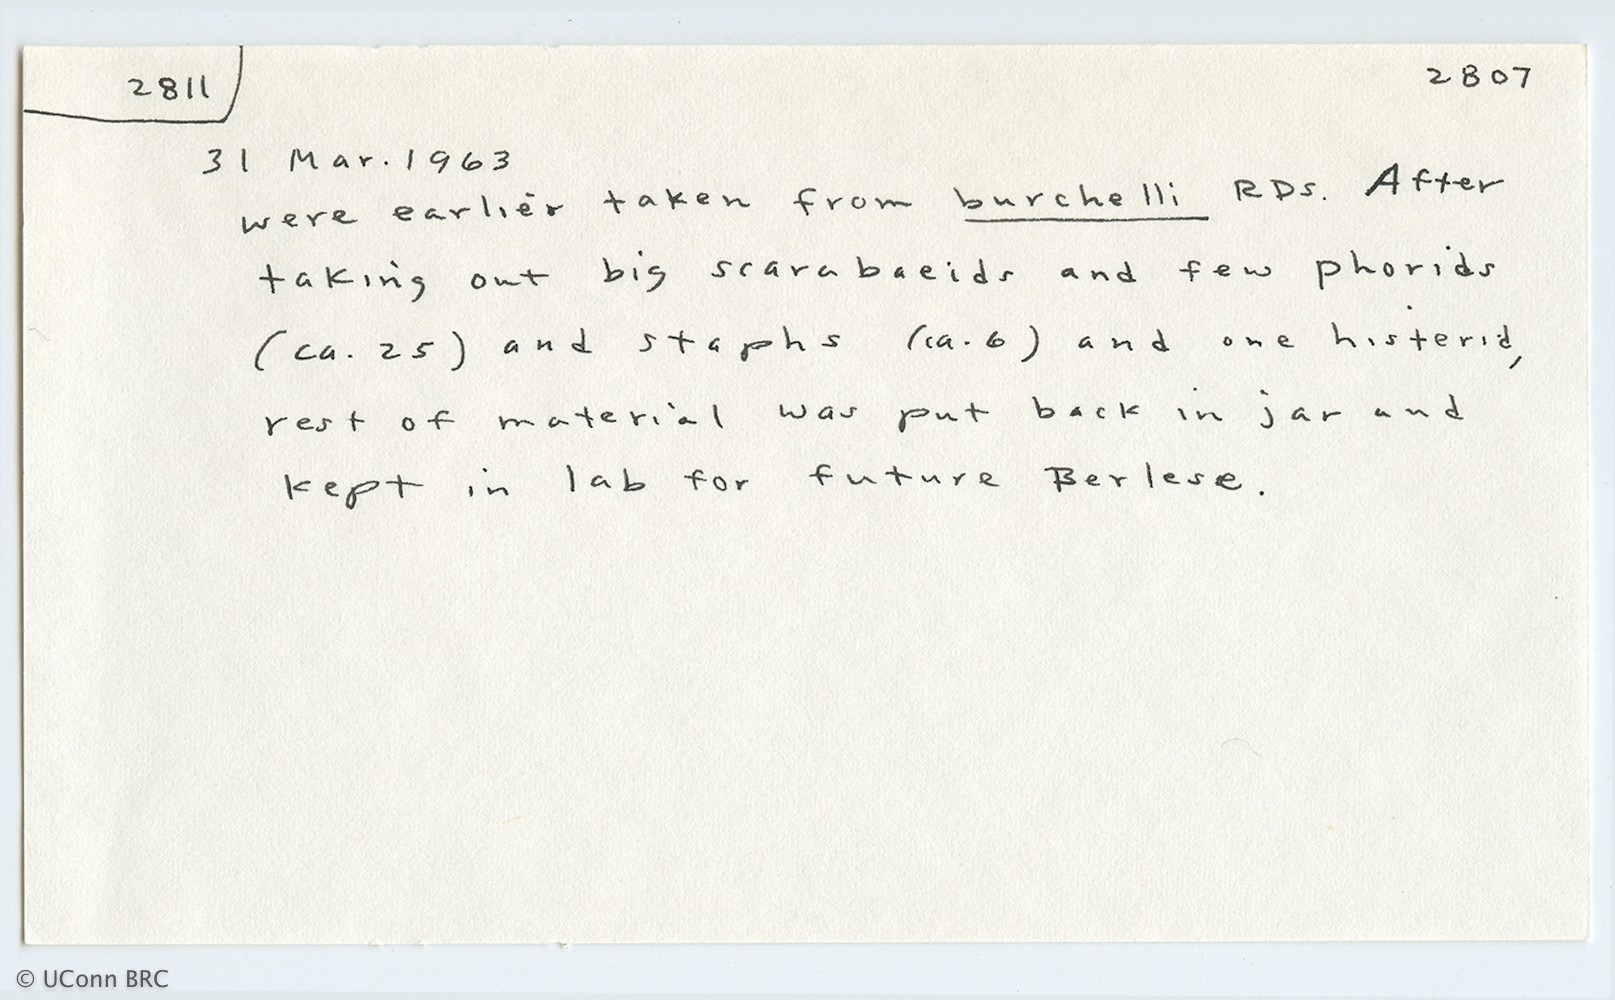 2811
2807
31 Mar. 1963
were earlier taken from burchelli RDs. After
taking out big scarabaeids and few phorids
(ca. 25) and staphs (ca. 6) and one histerid,
rest of material was put back in jar and
kept in lab for future Berlese.
© UConn BRC